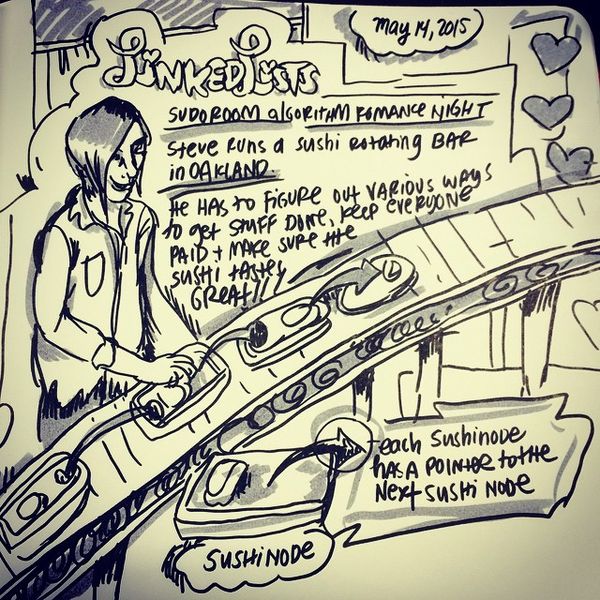 May 14, 2015
LiNKEDLiSTS
SUDOROOM algORITHM ROMANCE NIGHT
Steve Runs a Sushi Rotating BAR
in OAKLAND.
He Has to Figure out Various Ways
to get Stuff Done, Keep Everyone
Paid + Make Sure the
Sushi tastes
Great!!!
each Sushinode
Has a Pointer to the
Next Sushi Node
SUSHINODE